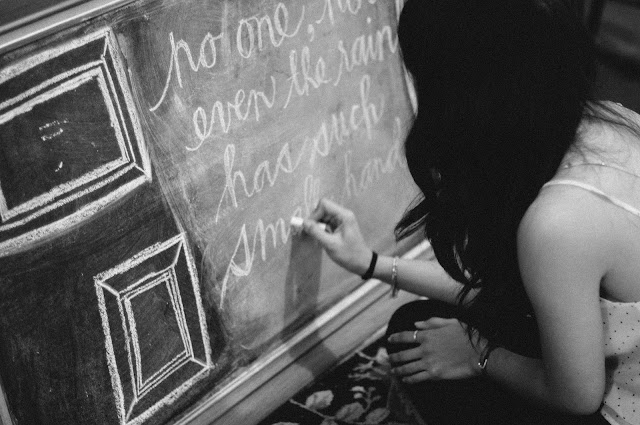 no one, not
even the rain
has such
small hand